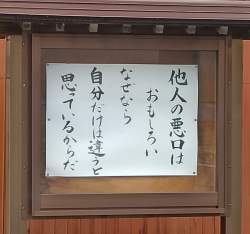 他人の悪口は
おもしろい
なぜなら
自分だけは違うと
思っているからだ